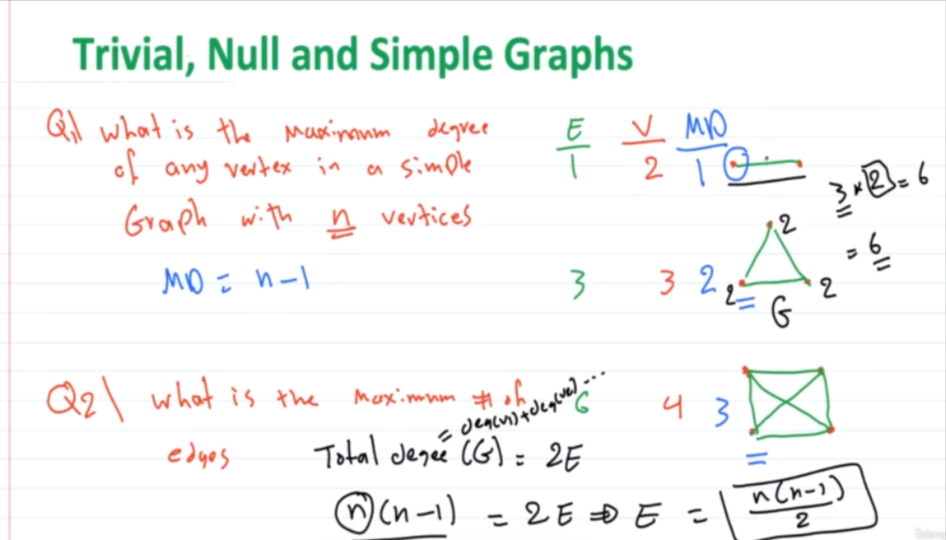 Trivial, Null and Simple Graphs
Q1\ what is the maximum degree
of any vertex in a simple
Graph with n vertices
MD = n-1
E V MD
1 2 1
3 * 2 = 6
= 6
3 3 2
2
2 2
G
Q2\ what is the maximum # of
edges
6 4 3
= deg(v1)+deg(v2) ...
Total degree (G) = 2E
n(n-1) = 2E ⇒ E = n(n-1)
2
Udemy